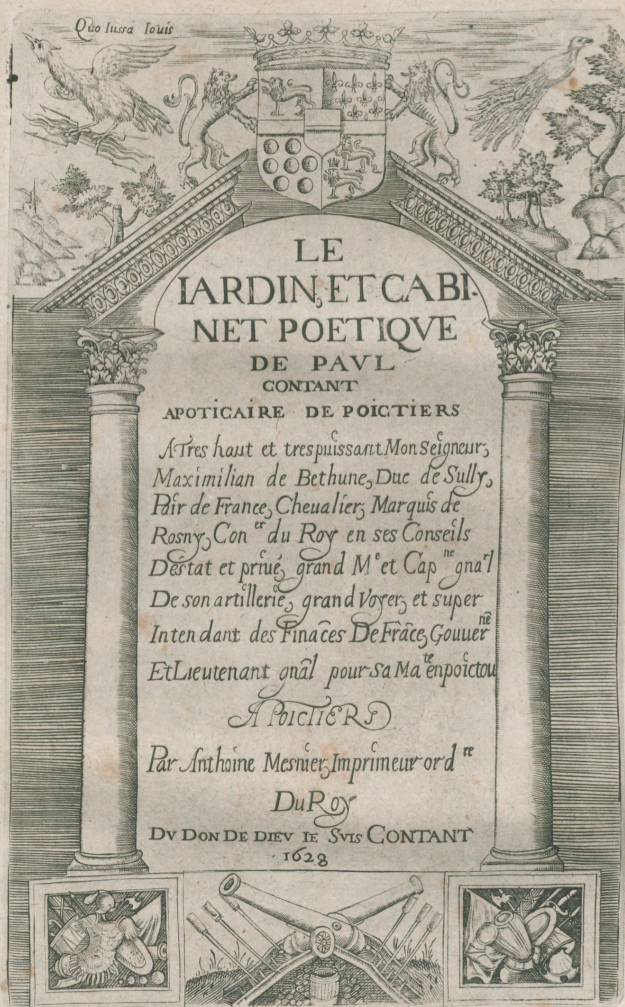 Quo Iussa Iouis
LE
IARDIN, ET CABI-
NET POETIQVE
DE PAVL
CONTANT
APOTICAIRE DE POICTIERS
A Tres haut et trespuissant Monseigneur,
Maximilian de Bethune, Duc de Sully,
Pair de France, Cheualier, Marquis de
Rosny, Con.er du Roy en ses Conseils
Destat et priué, grand Me et Cap.ne gnarl
De son artillerie, grand Voyer, et super
Intendant des Finãces De Frãce, Gouuerne
Et Lieutenant gnãl pour sa Mate enpoictou
A POICTIERS
Par Anthoine Mesnier, Imprimeur ordre
Du Roy
DV DON DE DIEV IE SVIS CONTANT
1628